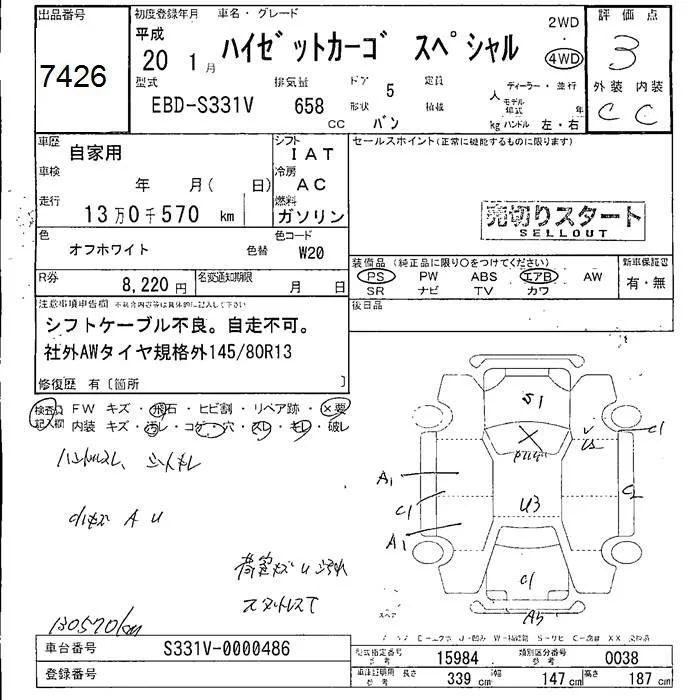 出品番号
7426
初度登録年月 車名・グレード
平成
20 1月 ハイゼットカーゴ スペシャル
2WD
4WD
評価点
3
外装 内装
C C
型式 排気量 ドア 5 定員
EBD-S331V 658 CC
形状 バン 積載 kg
人 ディーラー・並行
モデル年式 年
ハンドル 左・右
車歴
自家用
シフト
IAT
車検
年 月( 日)
冷房
AC
走行
13万0千570 km
燃料
ガソリン
色
オフホワイト 色替
色コード
W20
R券
8,220円
名変通知期限
月 日
セールスポイント(正常に機能するものに限ります)
売切りスタート
SELLOUT
装備品(純正品に限り○をつけてください)
PS PW ABS エアB AW
SR ナビ TV カワ
新車保証書
有・無
後日品
注意事項申告欄 不具合内容等は具体的に記入して下さい
シフトケーブル不良。自走不可。
社外AWタイヤ規格外145/80R13
修復歴 有〔箇所 〕
検査員記入欄
FW キズ・飛石・ヒビ割・リペア跡・×要
内装 キズ・汚レ・コゲ・穴・スレ・キレ・破レ
ハンドルスレ、シートキレ
A U
荷室キズU汚れ
スタットレスT
130570km
S1
U3
A1
C1
A1
C1
C2
C1
スペア
車台番号
S331V-0000486
登録番号
型式指定番号
参考
15984
類別区分番号
参考
0038
車庫証明用
参考
長さ 339 cm
幅 147 cm
高さ 187 cm